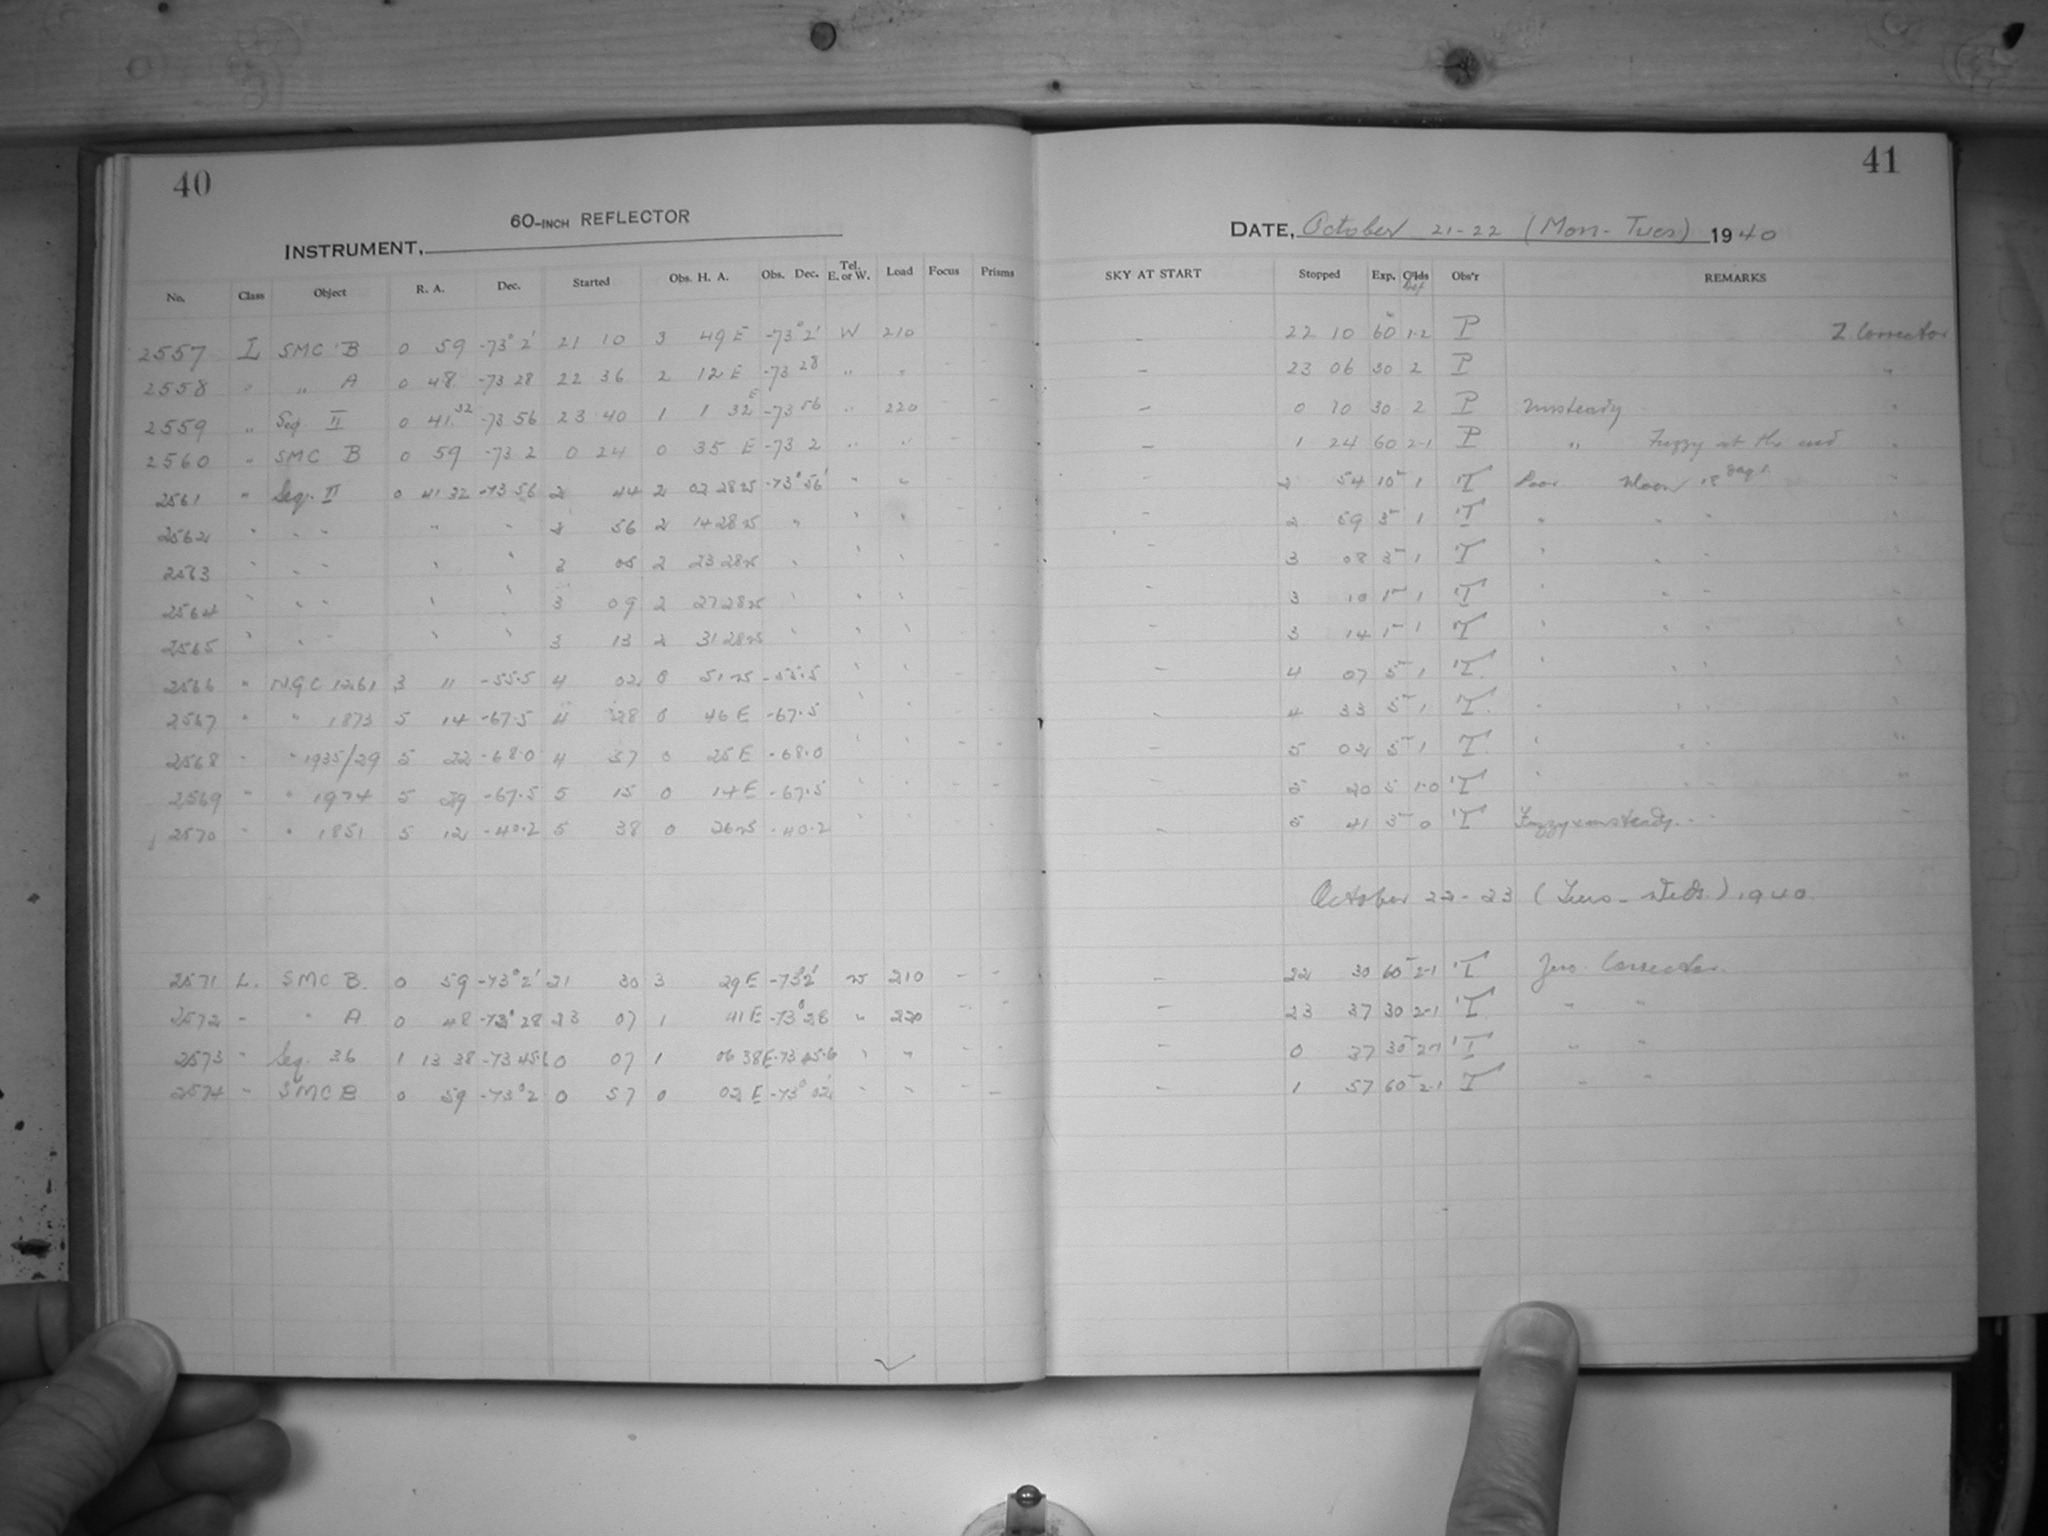 40
60-INCH REFLECTOR
INSTRUMENT,
No. Class Object R. A. Dec. Started Obs. H. A. Obs. Dec. Tel. E. or W. Load Focus Prisms
2557 L SMC B 0 59 -73° 2' 21 10 3 49 E -73° 2' W 210 -
2558 " " A 0 48 -73 28 22 36 2 12 E -73 28 " "
2559 " Seq. II 0 41 32 -73 56 23 40 1 1 32 E -73 56 " 220 - -
2560 " SMC B 0 59 -73 2 0 24 0 35 E -73 2 " " -
2561 " Seq. II 0 41 32 -73 56 2 44 2 02 28 W -73° 56' " "
2562 " " " " " 56 2 14 28 W " " "
2563 " " " " " 05 2 23 28 W "
2564 " " " " " 3 09 2 27 28 W " " "
2565 " " " " 3 13 2 31 28 W " " "
2566 " N.G.C 1261 3 11 -55.5 4 02 0 51 W -55.5 " " - -
2567 " " 1873 5 14 -67.5 4 28 0 46 E -67.5 "
2568 " " 1935/29 5 22 -68.0 4 57 0 25 E -68.0 " " - -
2569 " " 1974 5 29 -67.5 5 15 0 14 E -67.5 " "
2570 " " 1851 5 12 -40.2 5 38 0 26 W -40.2 " "
2571 L. SMC B. 0 59 -73° 2' 21 30 3 29 E -73° 2' W 210 - -
2572 " " A 0 48 -73° 28 23 07 1 41 E -73° 28 " 220
2573 " Seq. 36 1 13 38 -73 45.6 0 07 1 06 38 E -73 45.6 " "
2574 " SMC B 0 59 -73° 2 0 57 0 02 E -73° 02' " " - -
41
DATE, October 21-22 (Mon-Tues) 1940
SKY AT START Stopped Exp. Obs'r REMARKS
- 22 10 60 1-2 P Z. Corrector
- 23 06 30 2 P "
- 0 10 30 2 P Unsteady "
- 1 24 60 2-1 P " Fuzzy at the end "
- 2 54 10 1 T Poor Moon 18 days
- 2 59 3 1 T " " "
- 3 08 3 1 T " " "
- 3 10 1 1 T " " "
- 3 14 1 1 T " " "
- 4 07 5 1 T " " "
- 4 33 5 1 T " " "
- 5 02 5 1 T " " "
- 5 20 5 1-0 T " " "
- 5 41 3 0 T Fuzzy & unsteady. " "
October 22-23 (Tues-Weds.) 1940.
- 22 30 60 2-1 T Zero Corrector.
- 23 37 30 2-1 T " "
- 0 37 30 2-1 T " "
- 1 57 60 2-1 T " "